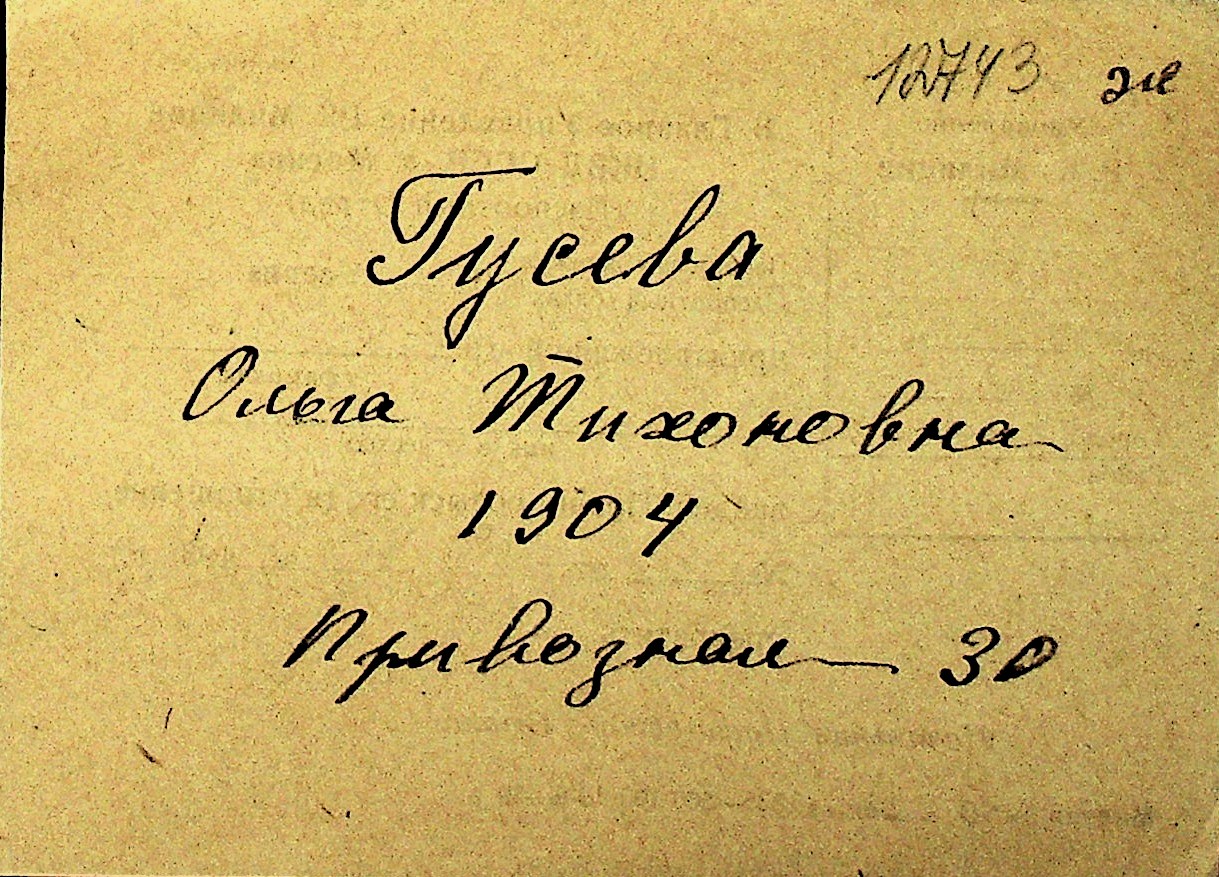 12743 эл
Гусева
Ольга Тихоновна
1904
Привозная 30